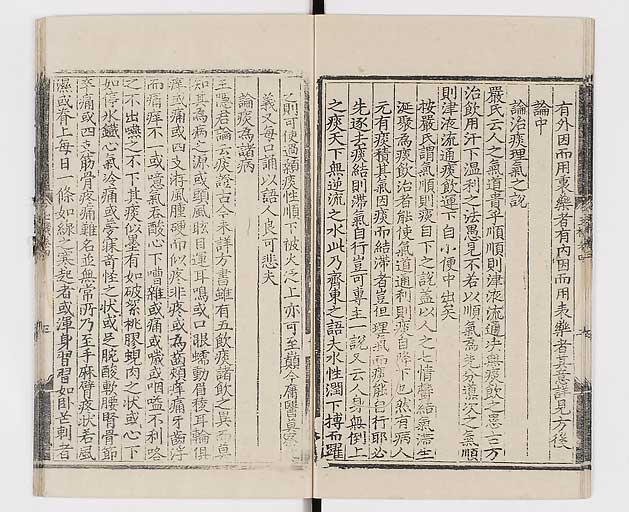 有外因而用裏藥者有內因而用表藥者其意詳見方後
論中
論治痰理氣之說
嚴氏云人之氣道貴乎順順則津液流通決無痰飲之患古方
治飲用汗下溫利之法愚見不若以順氣為先分導次之氣順
則津液流通痰飲運下自小便中出矣
按嚴氏謂氣順則痰自下之說蓋以人之七情鬱結氣滯生
涎聚為痰飲治者能使氣道通利則痰自降下也然有病人
元有痰積其氣因痰而結滯者豈但理氣而痰能自行耶必
先逐去痰結則滯氣自行豈可專主一說又云人身無倒上
之痰天下無逆流之水此乃齊東之語夫水性潤下搏而躍
之則可使過顙痰性順下被火泛上亦可至巔今庸醫莫察
義又每口誦以語人良可悲夫
論痰為諸病
王隱君論云痰證古今未詳方書雖有五飲痰諸飲之異而莫
知其為病之源或頭風眩目運耳鳴或口眼蠕動眉稜耳輪俱
痒或痛或四支游風腫硬而似疼非疼或為齒頰痒痛牙齒浮
而痛痒不一或噫氣吞酸心下嘈雜或痛或噦或咽嗌不利咯
之不出嚥之不下其痰似墨有如破絮桃膠蜆肉之狀或心下
如停冰鐵心氣冷痛或夢寐奇怪之狀或足腕酸軟腰背骨節
卒痛或四支筋骨疼痛難名並無常所乃至手麻臂疼狀若風
濕或脊上每日一條如線之寒起者或渾身習習如臥芒刺者